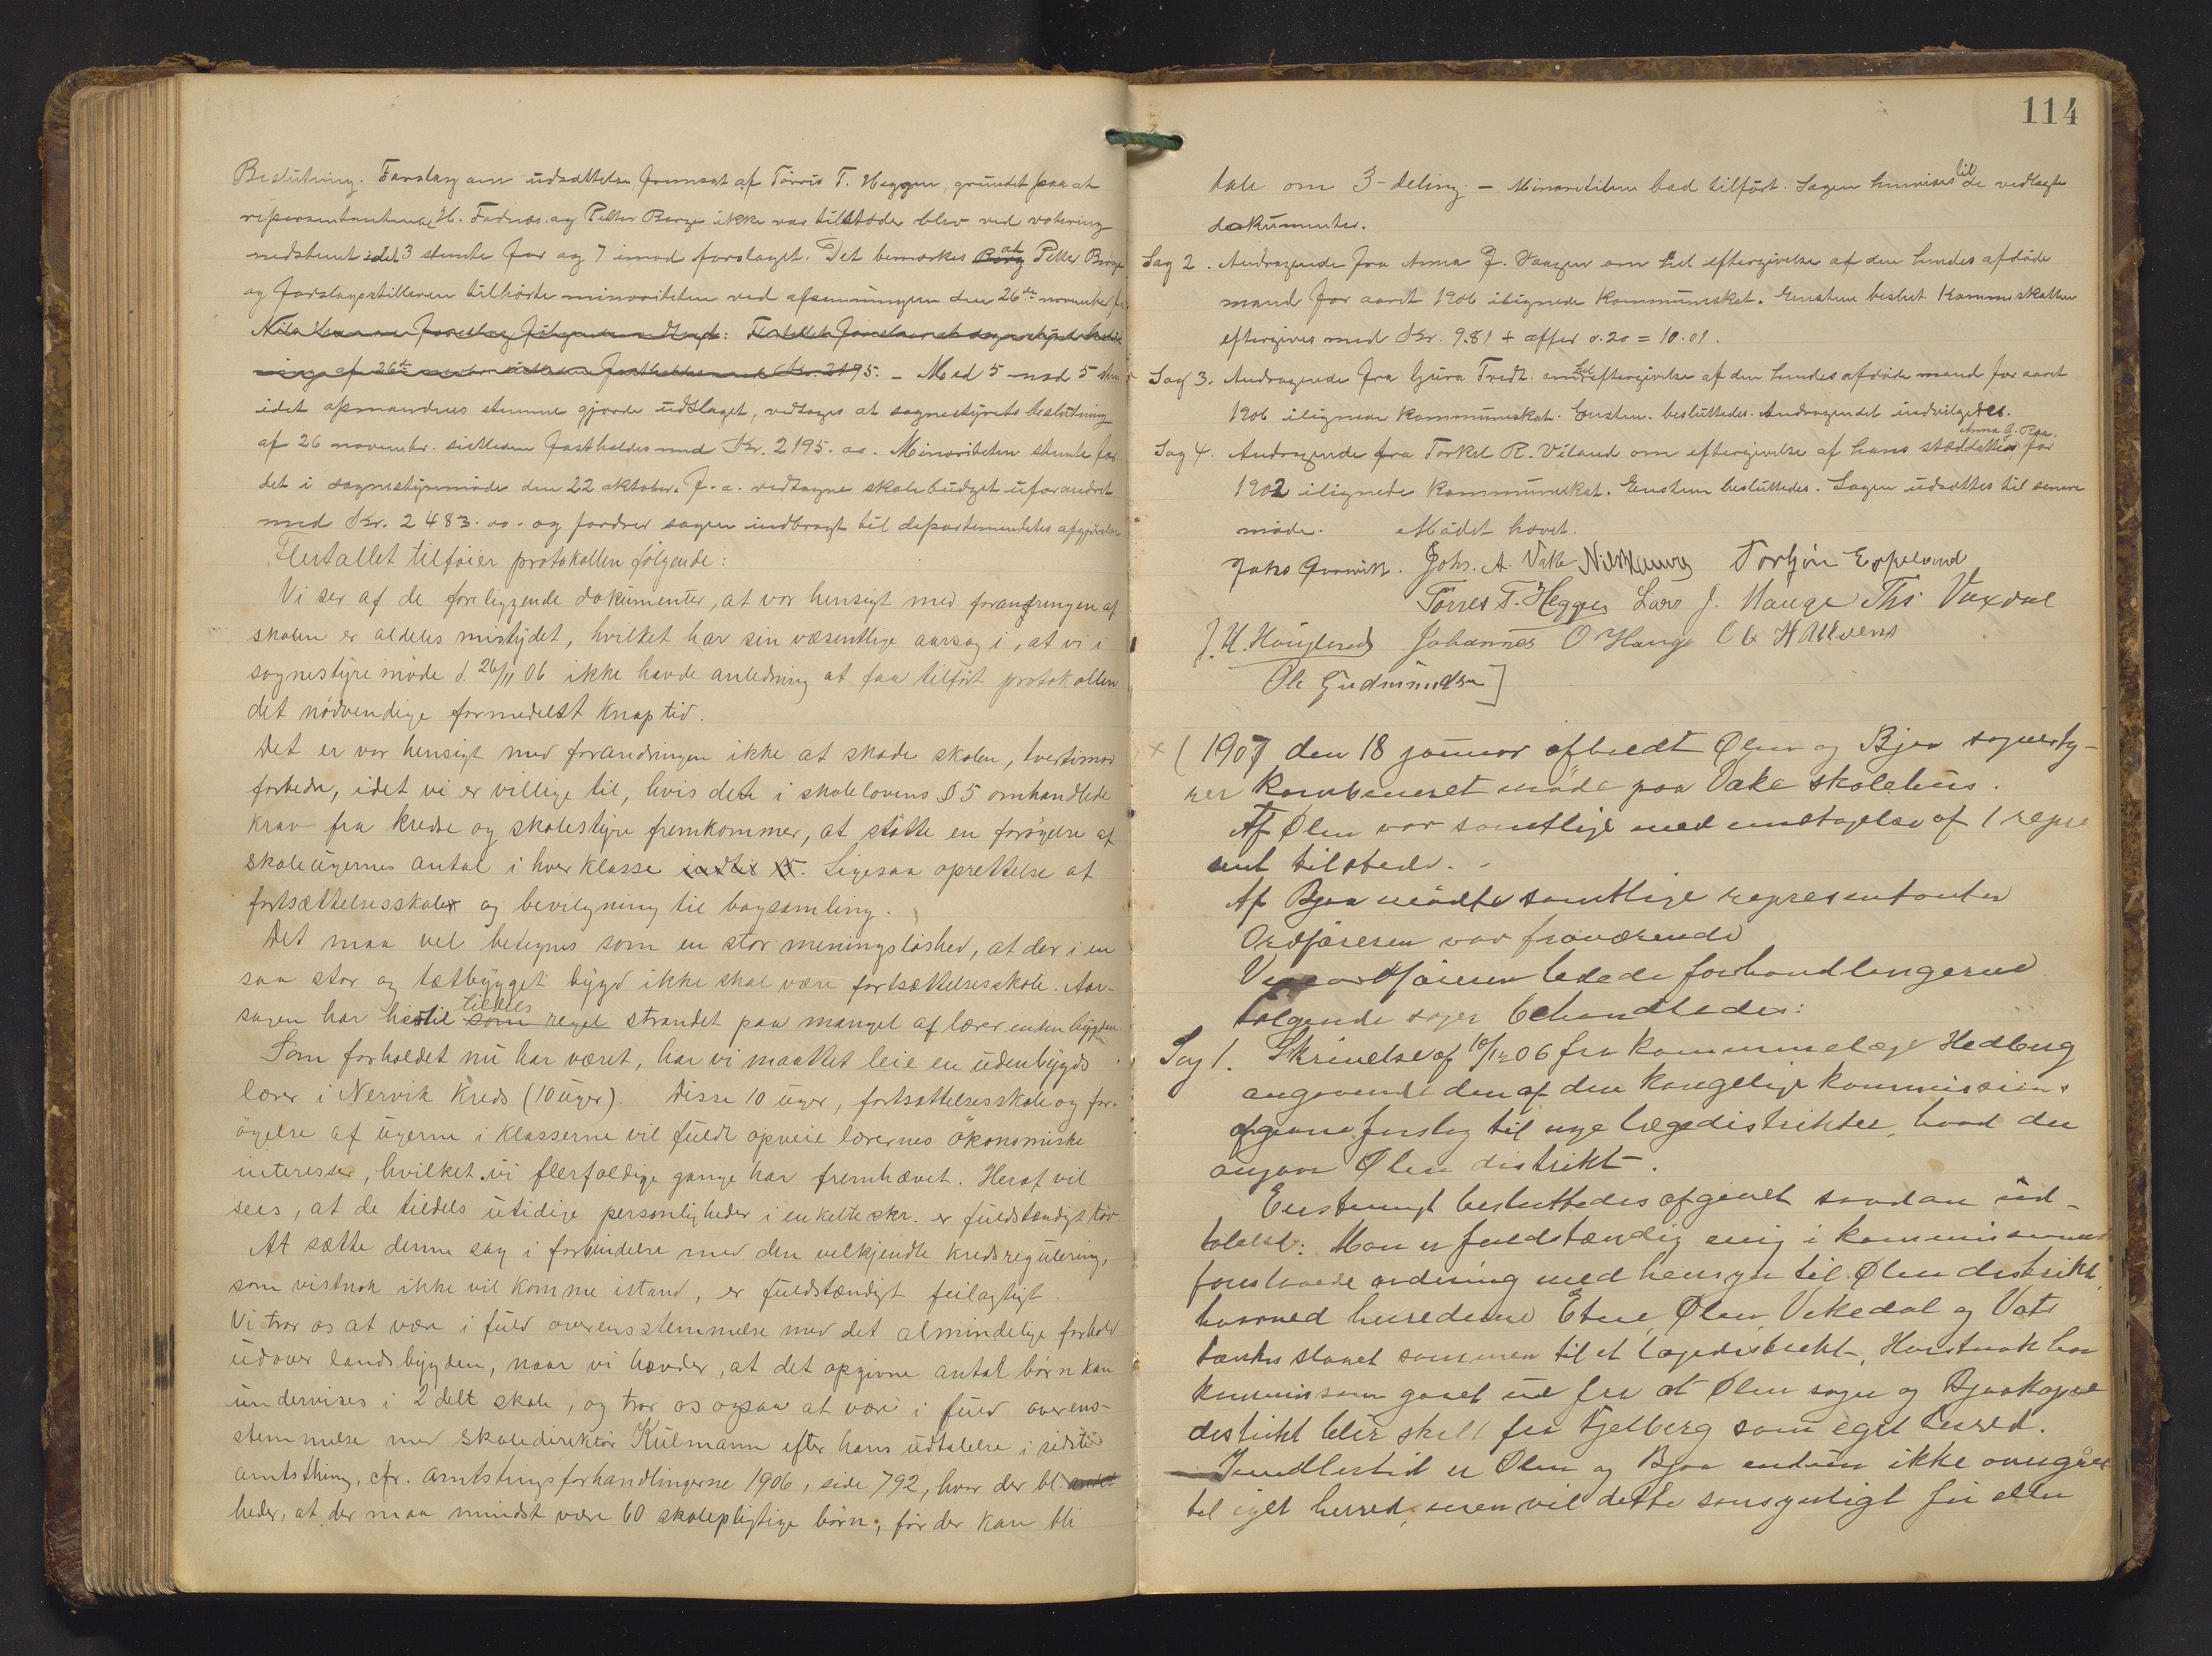 Beslutning. Forslag om udsættelse fremsat af Törris T. Heggen, grundet paa at
representanterne H. Fadnes. og Petter Berge ikke var tilstede blev ved votering
nedstemt idet 3 stemte for og 7 imod forslaget. Det bemærkes at Petter Berge
og forslagsstilleren tilhörte minoriteten ved afstemningen den 26de november
Nils forslag
af 26de fastholdes med Kr. 2195. - Med 5 mod 5 stem
idet opmandens stemme gjorde udslaget, vedtoges at sognestyrets beslutning
af 26 novembr. sidstleden fastholdes med Kr. 2195.00. Minoriteten stemte for
det i sognestyremöde den 22 oktober f. a. vedtagne skolebudget uforandret
med Kr. 2483.00. og fordrer sagen indbragt til departementets afgjörelse
Flertallet tilföier protokollen fölgende:
Vi ser af de foreliggende dokumenter, at vor hensigt med forandringen af
skolen er aldeles mistydet, hvilket har sin væsentlige aarsag i, at vi i
sognestyremöde d. 26/11 06 ikke havde anledning at faa tilfört protokollen
det nödvendige formedelst knap tid.
Det er vor hensigt med forandringen ikke at skade skolen, tvertimod
forbedre, idet vi er villige til, hvis dete i skolelovens § 5 omhandlede
krav fra kredse og skolestyre fremkommer, at stötte en forögelse af
skoleugernes antal i hver klasse indtil 15. Ligesaa oprettelse af
fortsættelsesskoler og bevilgning til bogsamling.
Det maa vel betegnes som en stor meningslöshed, at der i en
saa stor og tætbygget bygd ikke skal være fortsættelsesskole. Aar-
sagen har hertil tildels som regel strandet paa mangel af lærer enden bygden.
Som forholdet nu har været, har vi maattet leie en udenbygds
lærer i Nervik Kreds (10 uger). Disse 10 uger, fortsættelsesskole og for-
ögelse af ugerne i klasserne vil fuldt opveie lærernes ökonomiske
interesser, hvilket vi flerfoldige gange har fremhævet. Heraf vil
sees, at de tildels utidige personligheder i enkelte skr. er fuldstændigt töv.
At sætte denne sag i forbindelse med den velkjendte kredsregulering,
som vistnok ikke vil komme istand, er fuldstændigt feilagtigt.
Vi tror os at være i fuld overensstemmelse med det almindelige forhold
udover landsbygden, naar vi hævder, at det opgivne antal börn kan
undervises i 2 delt skole, og tror os ogsaa at være i fuld overens-
stemmelse med skoledirektör Kulmann efter hans udtalelse i sidste
amtsthing, cfr. amtstingsforhandlingerne 1906, side 792, hvor der bl. andet
heder, at der maa mindst være 60 skolepligtige börn, för der kan bli
114
tale om 3-deling. - Minoriteten bad tilfört. Sagen henvises til de vedlagte
dokumenter.
Sag 2. Andragende fra Anna J. Vaagen om hel eftergivelse af den hendes afdöde
mand for aaret 1906 ilignede kommuneskat. Enstem. beslut. Kommuneskatten
eftergives med Kr. 9.81 + offer 0.20 = 10.01.
Sag 3. Andragende fra Gura Tredt. om hel eftergivelse af den hendes afdöde mand for aaret
1906 ilignede kommuneskat. Enstem. besluttedes. Andragendet indvilgedes.
Sag 4. Andragende fra Torkel R. Viland om eftergivelse af hans stæddatter Anna G. Roa. for
1902 ilignede kommuneskat. Enstem besluttedes. Sagen udsættes til senere
möde. Mödet hævet.
Johs. A. Vake Torbjön Espeland
Törres T. Heggen Lars J. Hauge Ths Vaxdal
J. H. Hougland Johannes O Hauge
Ole Gudmundsen
x ( 1907 den 18 januar afholdt Ølen og Bjoa sognesty-
rer kombeneret möde paa Vake skolehus.
Af Ølen var samtlige med undtagelse af 1 repre
sent tilstede. -
Af Bjoa mödte samtlige representanter
Ordföreren var fraværende
Viceordföreren ledede forhandlingerne
Følgende sager behandledes:
Sag 1. Skrivelse af 10/12 06 fra kommunelæge Hedberg
angaaende den af den kongelige kommission
afgivne forslag til nye lægedistrikter, hvad der
angaar Ølen distrikt.
Enstemmigt besluttedes afgivet saadan ud-
talelse: Man er fuldstændig enig i kommissionens
foreslaaede ordning med hensyn til Ølen distrikt,
hvorved herrederne Etne, Ølen, Vikedal og Vats
tænkes slaaet sammen til et lægedistrikt. Herstnok har
kommissionen gaaet ud fra at Ølen sogn og Bjoa kapel
distrikt blir skilt fra Fjelberg som eget herred.
- Imidlertid er Ølen og Bjoa endnu ikke overgået
til eget herred, men vil dette sansynligt för eller